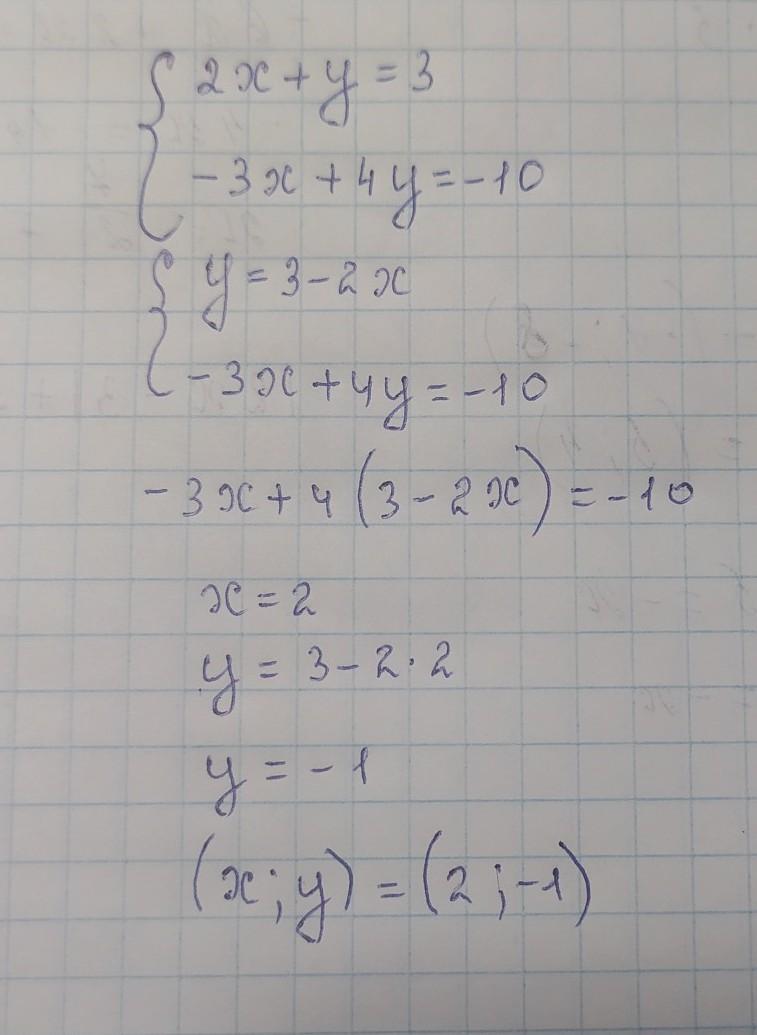 2x + y = 3
-3x + 4y = -10
y = 3 - 2x
-3x + 4y = -10
-3x + 4(3 - 2x) = -10
x = 2
y = 3 - 2 · 2
y = -1
(x; y) = (2; -1)